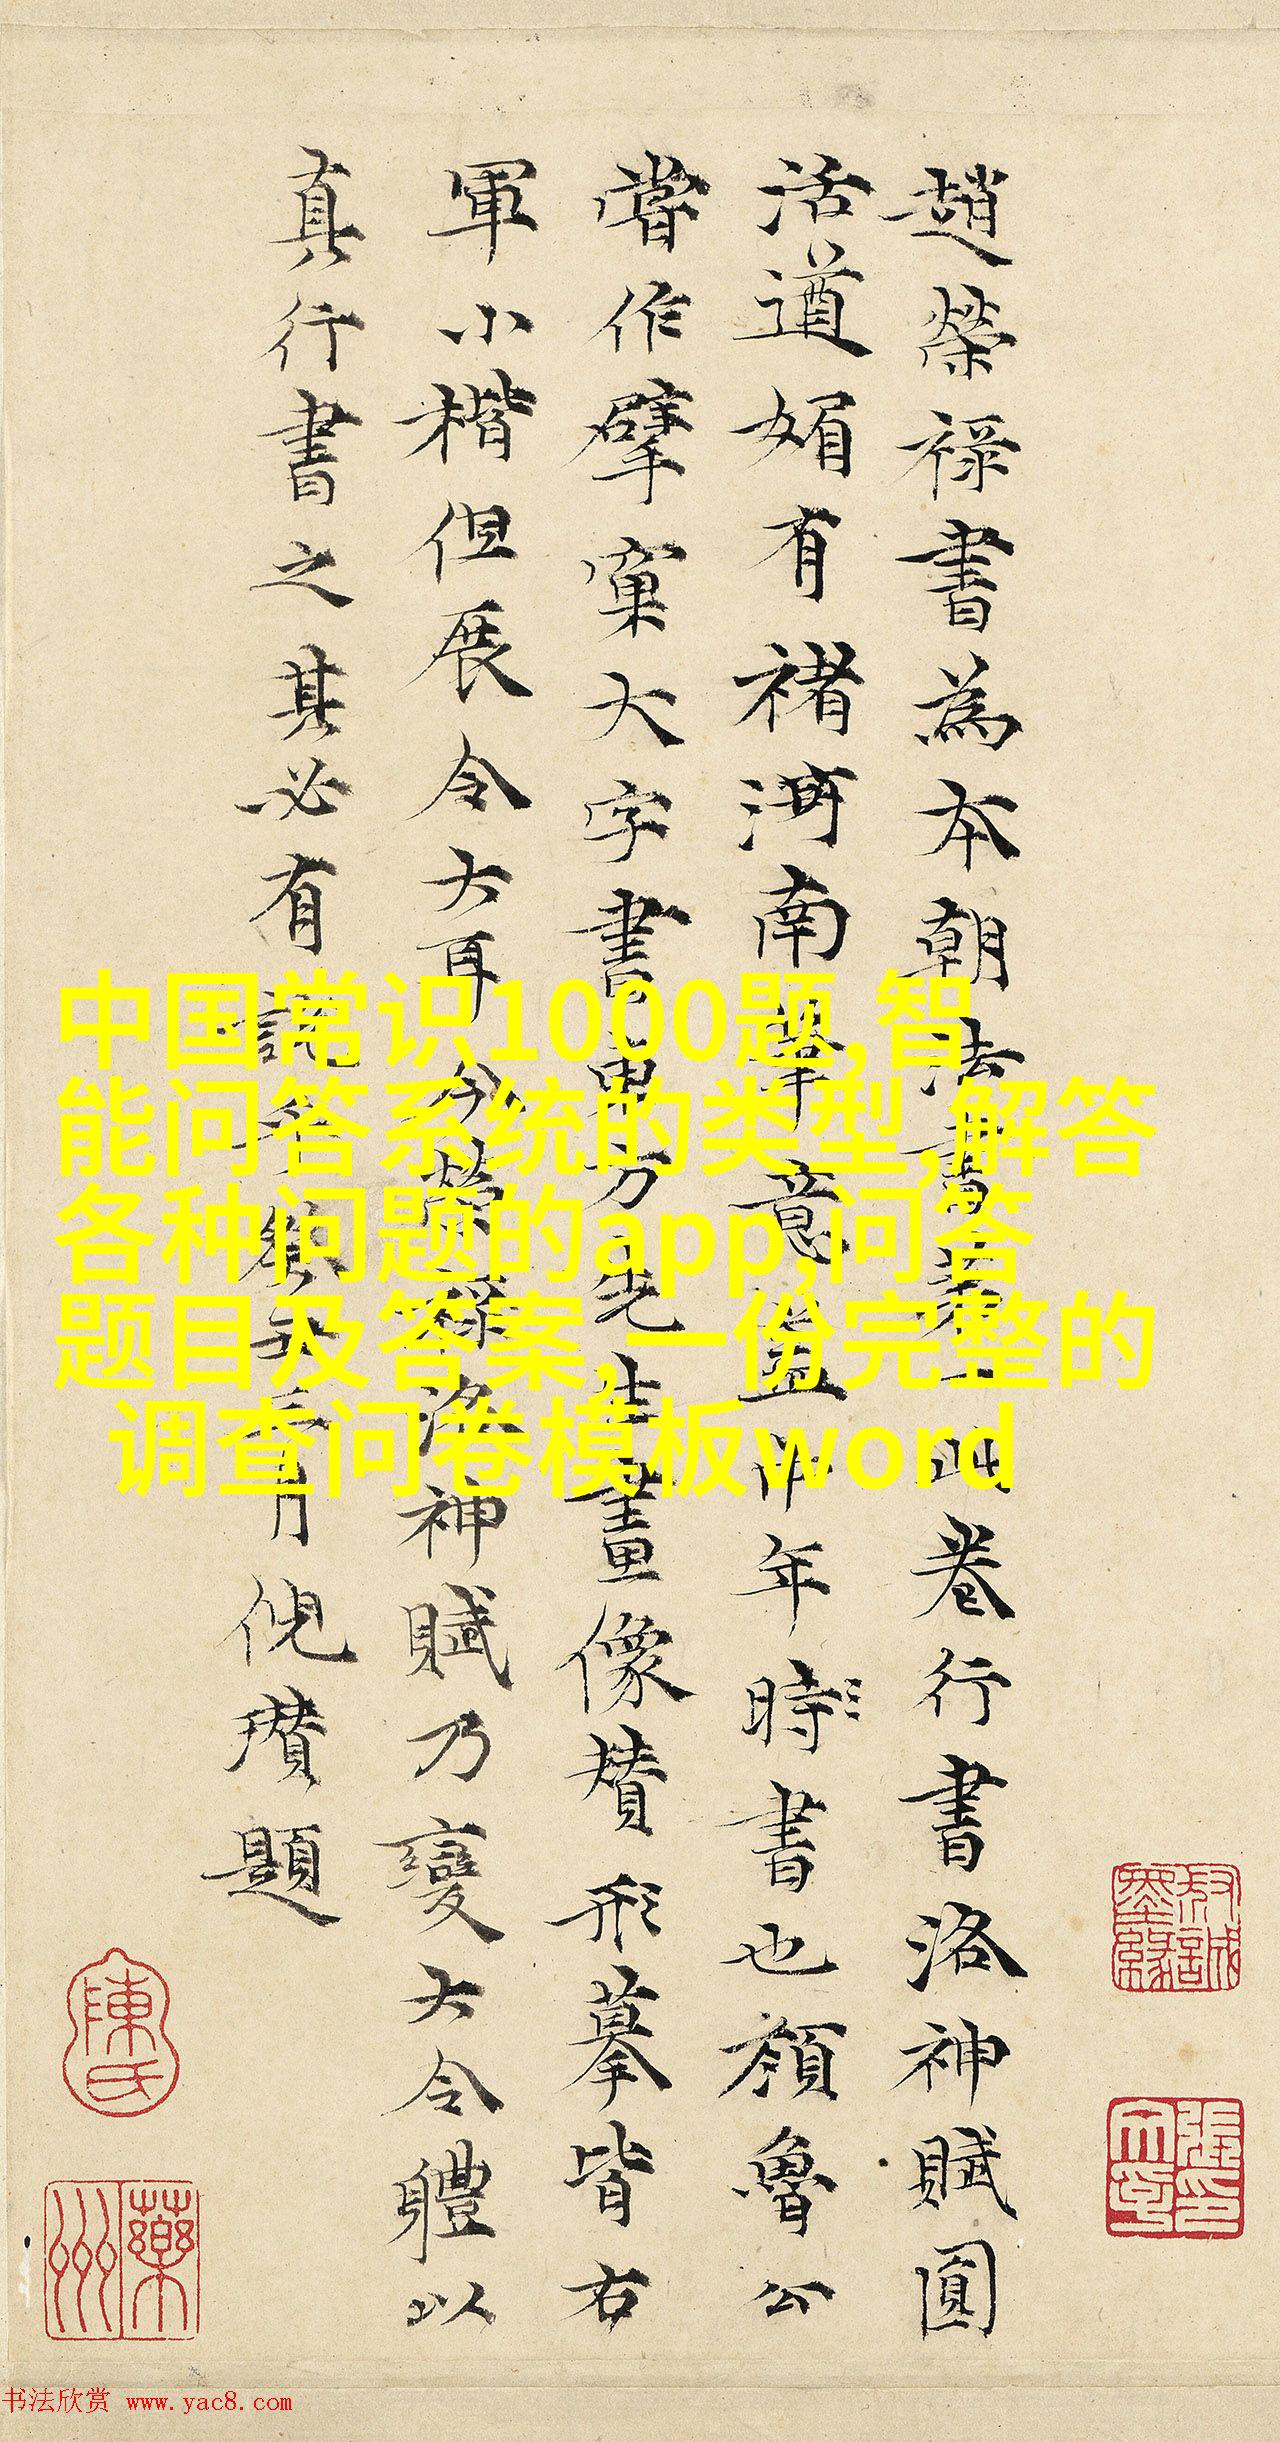 趙榮祿書為本朝法書第一此卷行書洛神賦圓
活遒媚有褚河南筆意蓋中年時書也顏魯公
嘗作擘窠大字書東方先生畫像贊形摹皆右
軍小楷但展令大耳今榮祿洛神賦乃變大令體以
真行書之其必有說乎月倪瓚題
中国常识1000题,智
能问答系统的类型,解答
各种问题的app,问答
题目及答案,一份完整的
调查问卷模板word
陳氏
书法欣赏 www.yac8.com